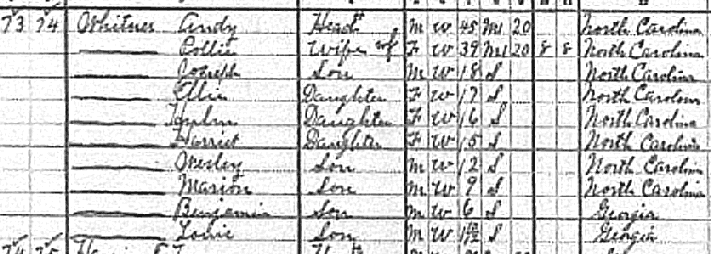 73 74 Whitner Andy Head M W 45 M1 20 North Carolina
Wife F W 39 M1 20 8 8 North Carolina
Joseph Son M W 18 S North Carolina
Daughter F W 17 S North Carolina
Daughter F W 16 S North Carolina
Harriet Daughter F W 15 S North Carolina
Wesley Son M W 12 S North Carolina
Marion Son M W 9 S North Carolina
Benjamin Son M W 6 S Georgia
Son M W S Georgia